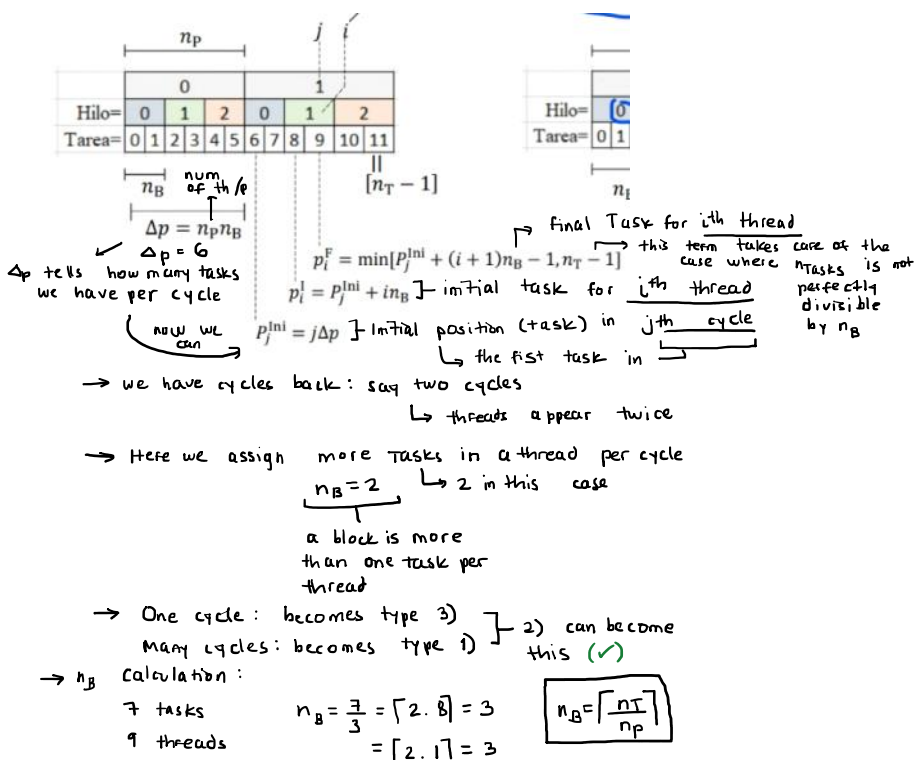 n_P
j i
0 1
Hilo= 0 1 2 0 1 2
Tarea= 0 1 2 3 4 5 6 7 8 9 10 11
Hilo= 0
Tarea= 0 1
n_B
num of th/p
[n_T − 1]
Δp = n_P n_B
Δp = 6
Δp tells how many tasks
we have per cycle
now we
can
p_i^F = min[P_j^Ini + (i + 1)n_B − 1, n_T − 1]
final Task for ith thread
this term takes care of the
case where nTasks is not
perfectly
divisible
by n_B
p_i^I = P_j^Ini + in_B ] initial task for ith thread
P_j^Ini = jΔp ] Initial position (task) in jth cycle
↳ the fist task in
→ we have cycles back: say two cycles
↳ threads appear twice
→ Here we assign more Tasks in a thread per cycle
n_B = 2 ↳ 2 in this case
a block is more
than one task per
thread
→ One cycle: becomes type 3)
Many cycles: becomes type 1)
2) can become
this (✓)
→ n_B Calculation:
7 tasks n_B = 7/3 = ⌈2.8⌉ = 3
9 threads = ⌈2.1⌉ = 3
n_B = ⌈nT/n_P⌉